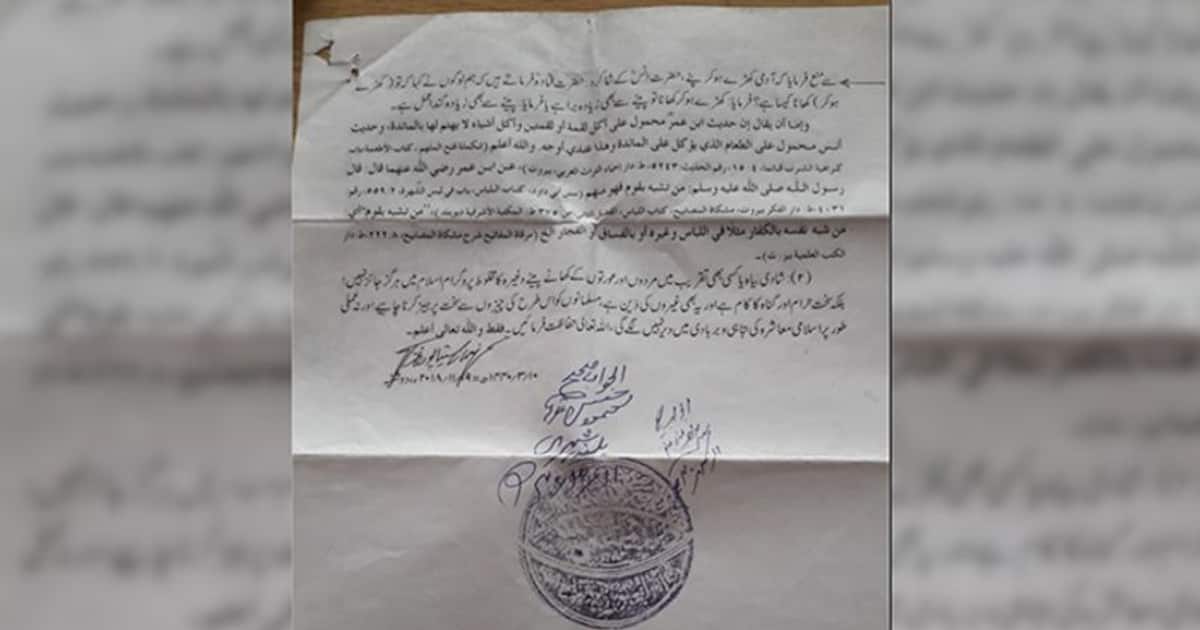 سے منع فرمایا کہ آدمی کھڑے ہوکر پئے، حضرت انسؓ کے شاگرد حضرت قتادہ فرماتے ہیں کہ ہم لوگوں نے کہا کہ تو (کھڑے
ہوکر) کھانا کیسا ہے؟ فرمایا: کھڑے ہوکر کھانا تو پینے سے بھی زیادہ برا ہے یا فرمایا: پینے سے بھی زیادہ گندا عمل ہے۔
وإما أن يقال إن حديث ابن عمرؓ محمول على أكل لقمة أو لقمتين وأكل أشياء لا يهتم لها بالمائدة، وحديث
أنس محمول على الطعام الذي يؤكل على المائدة وهذا عندي أوجه. والله أعلم (تكملة فتح الملهم، كتاب الأشربة، باب
كراهية الشرب قائما، رقم الحديث: ٥٢٤٣، ط: دار إحياء التراث العربي، بيروت)، عن ابن عمر رضي الله عنهما قال: قال
رسول اللـه صلى الله عليه وسلم: من تشبه بقوم فهو منهم (سنن أبي داود، كتاب اللباس، باب في لبس الشهرة، ٥٥٩:٢، رقم
٤٠٣١، ط: دار الفكر بيروت، مشكاة المصابيح، كتاب اللباس، الفصل الثاني، ص ٣٧٥ ط: المكتبة الأشرفية ديوبند)، "من تشبه بقوم" أي
من شبه نفسه بالكفار مثلا في اللباس وغيره أو بالفساق أو الفجار الخ (مرقاة المفاتيح شرح مشكاة المصابيح، ٢٢٢:٨، ط: دار
الكتب العلمية بيروت)۔
(۲): شادی بیاہ یا کسی بھی تقریب میں مردوں اور عورتوں کے کھانے پینے وغیرہ کا مخلوط پروگرام اسلام میں ہرگز جائز نہیں؛
بلکہ سخت حرام اور گناہ کا کام ہے اور یہ بھی غیروں کی دین ہے، مسلمانوں کو اس طرح کی چیزوں سے سخت پرہیز کرنا چاہیے اور نہ عملی
طور پر اسلامی معاشرہ کی تباہی و بربادی میں دیر نہیں لگے گی، اللہ تعالی حفاظت فرمائیں۔ فقط واللہ تعالی أعلم۔
الجواب صحیح